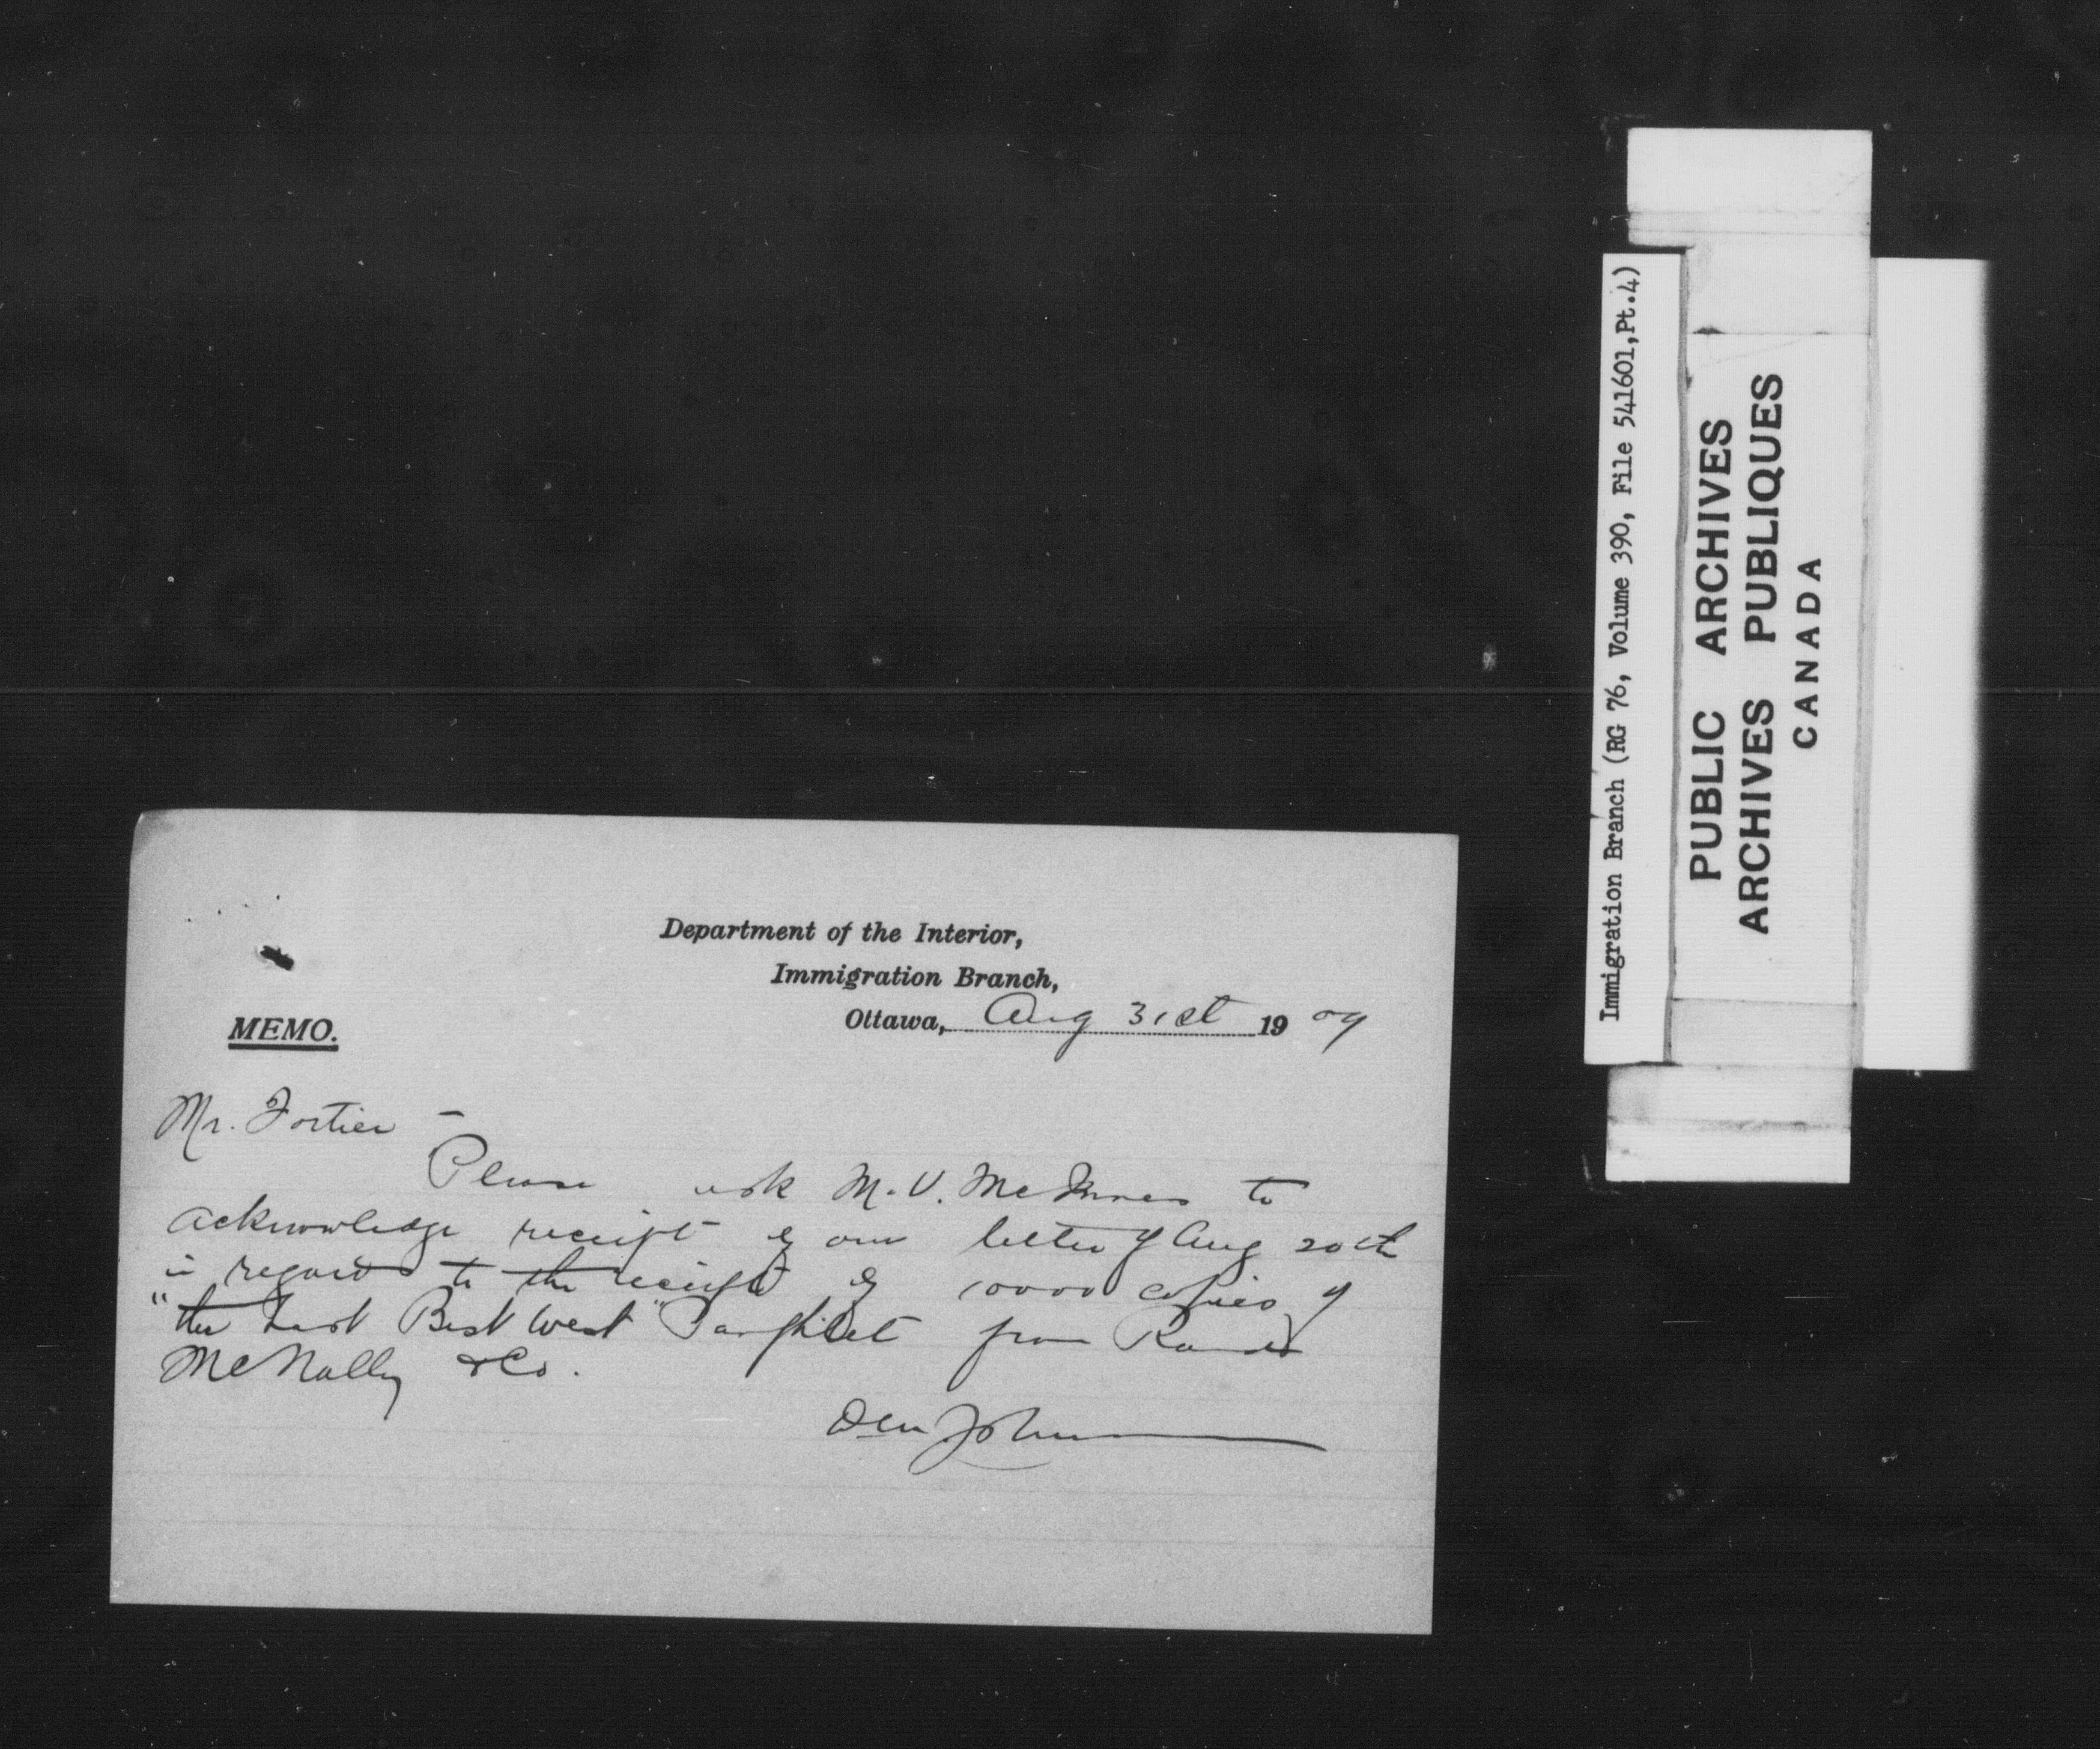 Department of the Interior,
Immigration Branch,
Ottawa, Aug 31st 1909
MEMO.
Mr. Fortier -
Please ask M.V. McInnes to
acknowledge receipt of our letter of Aug 20th
in regard to the receipt of 10000 copies of
"the Last Best West" Pamphlet from Rand
McNally & Co.
Immigration Branch (RG 76, Volume 390, File 541601,Pt.4)
PUBLIC ARCHIVES
ARCHIVES PUBLIQUES
CANADA